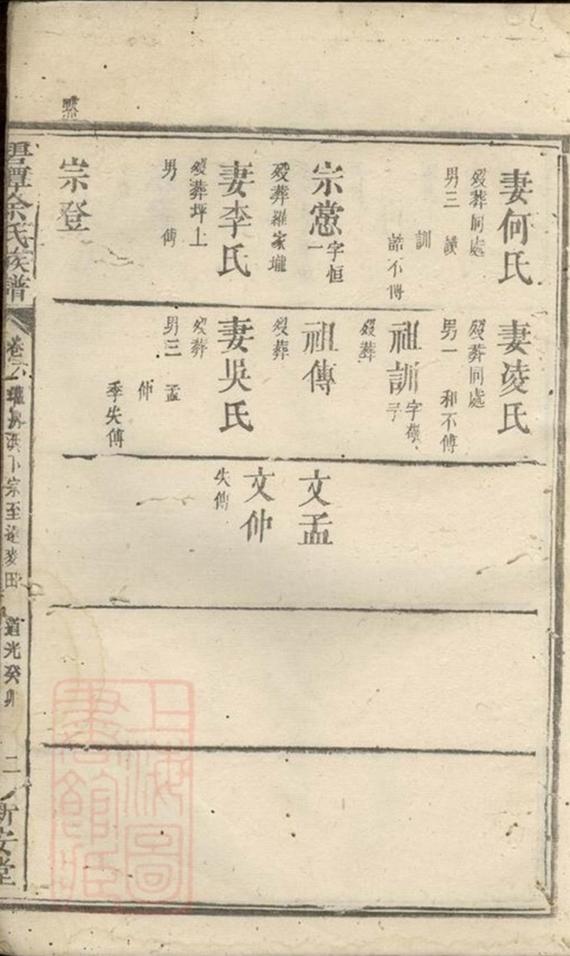 妻何氏
歿葬同處
男三 讀
訓
諱不傳
宗憲
字恒一
歿葬羅家壠
妻李氏
歿葬坪上
男 傳
宗登
妻凌氏
歿葬同處
男一 和不傳
祖訓
歿葬
祖傳
歿葬
妻吳氏
歿葬
男三 孟
仲
季失傳
文孟
文仲
失傳
余氏族譜
道光癸卯
二
新安堂
上海圖書館藏